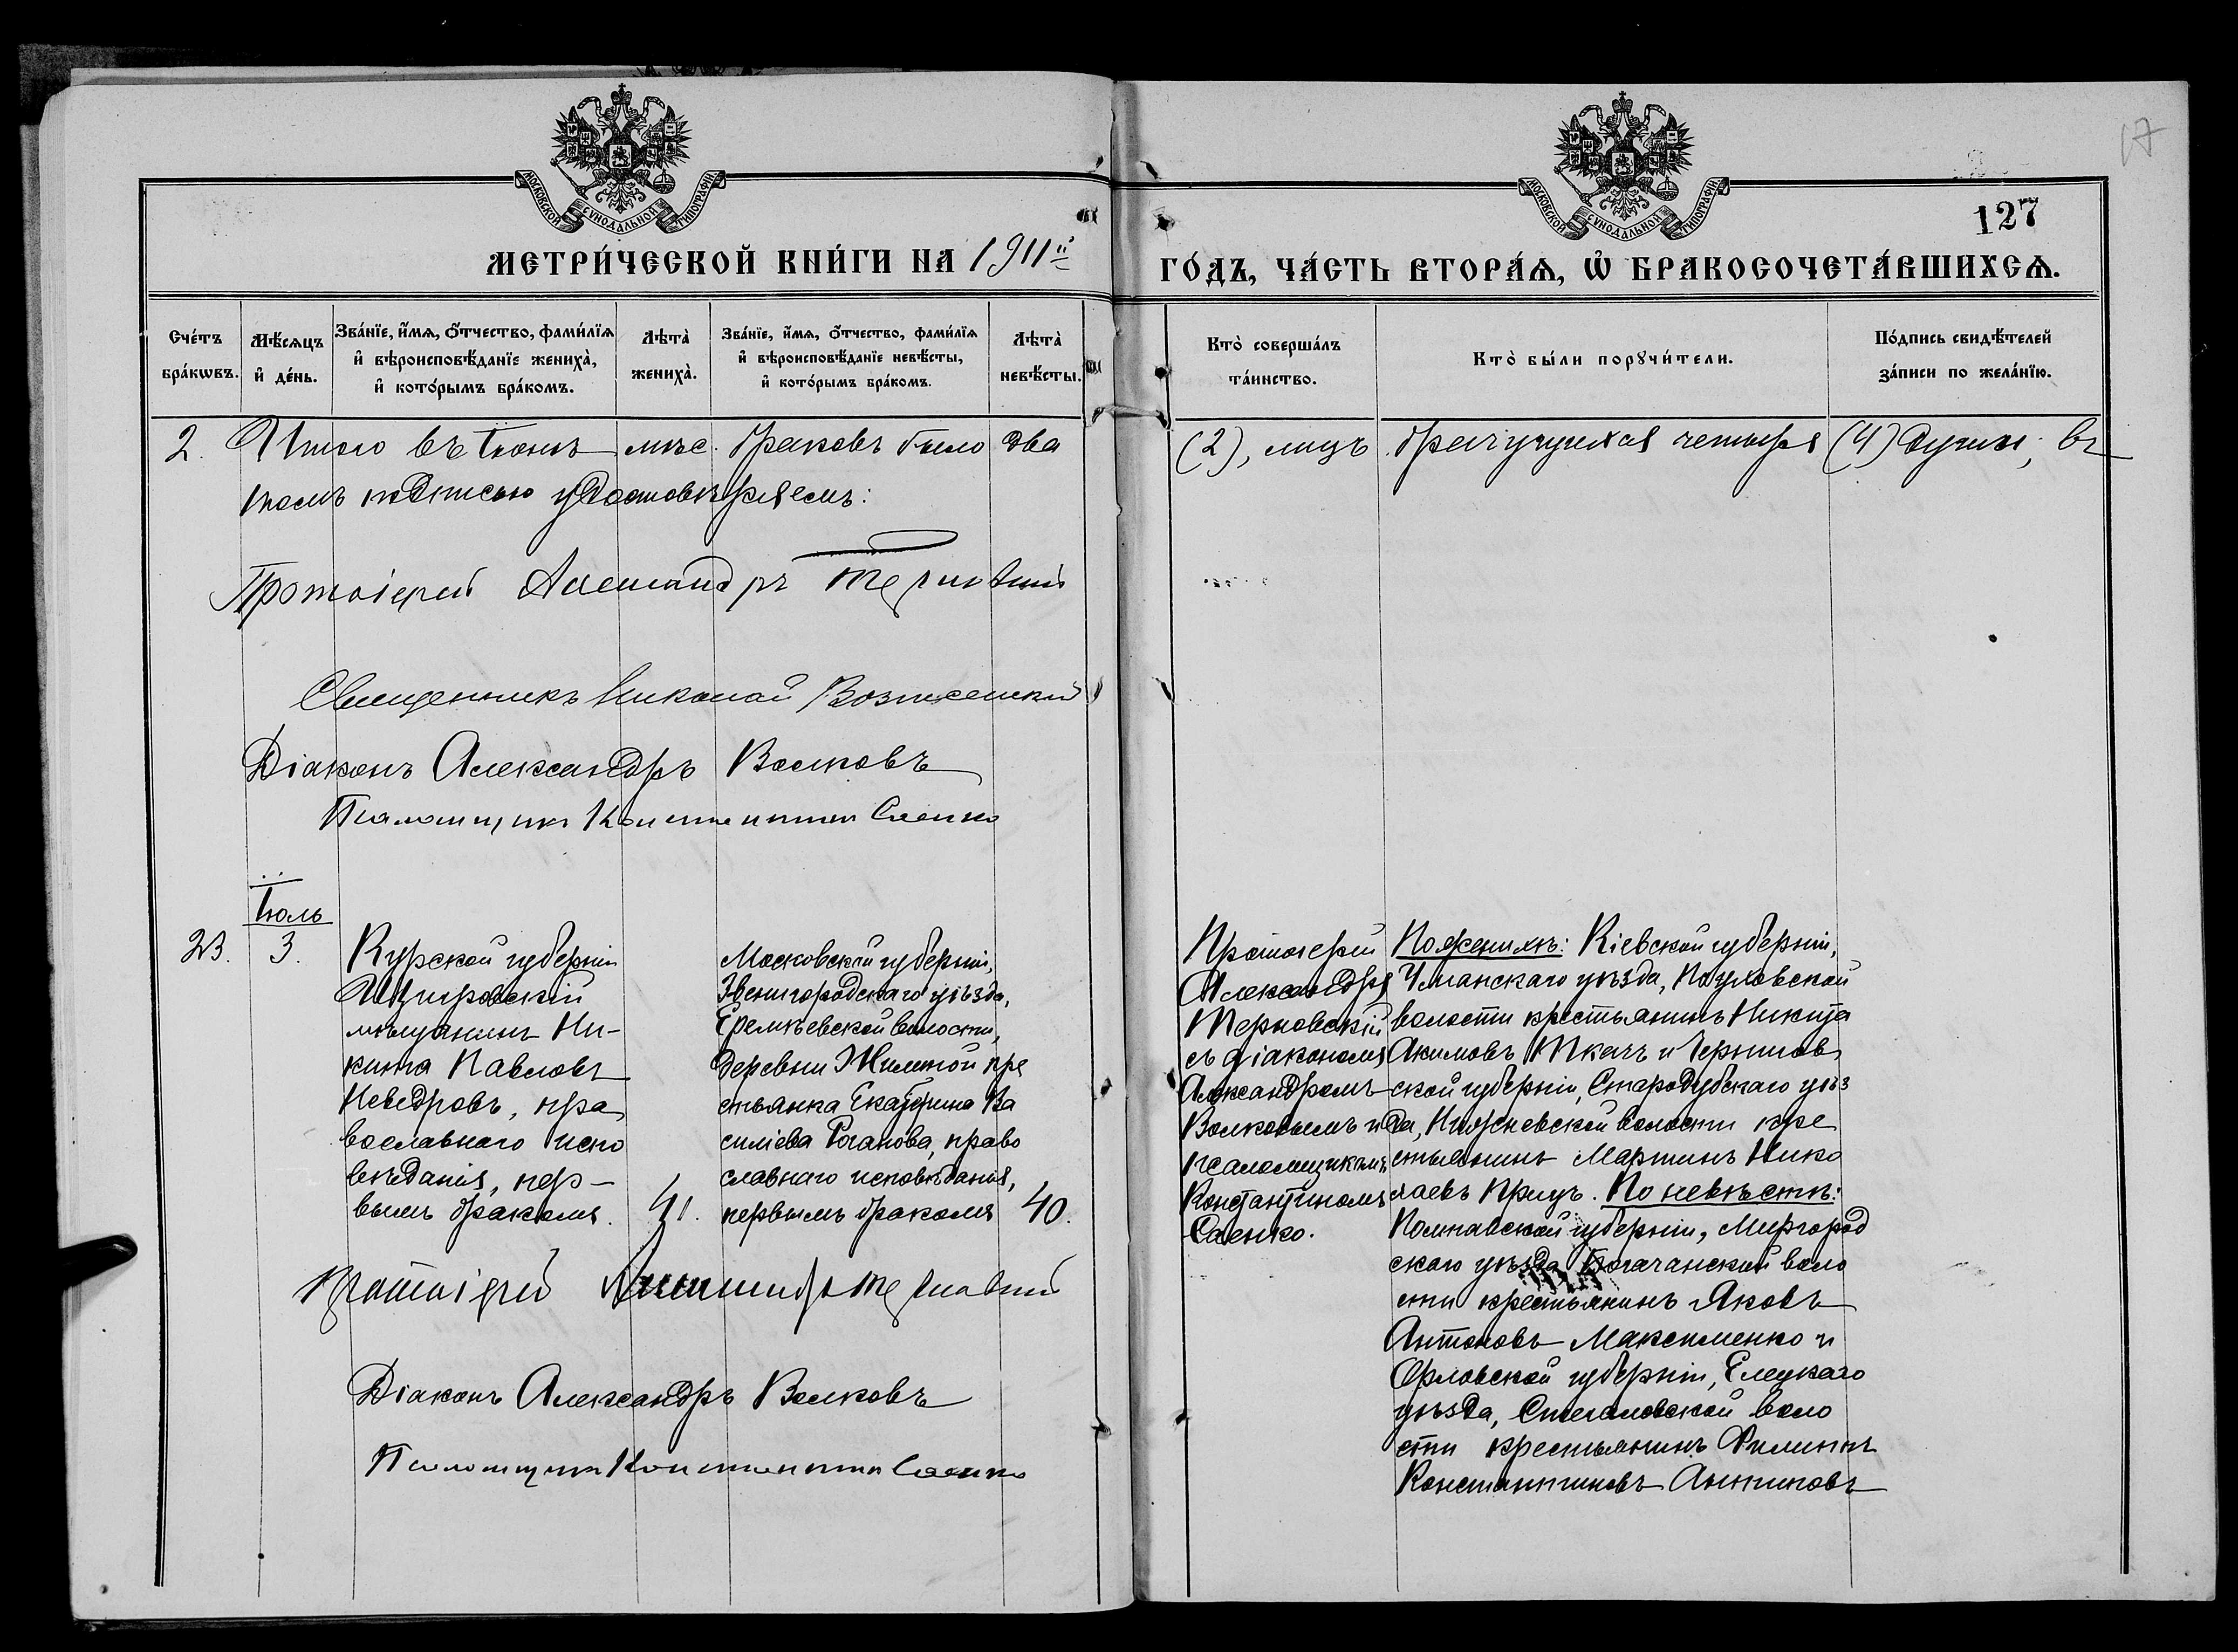 17
МОСКОВСКОЙ СѴНОДАЛЬНОЙ ТИПОГРАФІИ
МОСКОВСКОЙ СѴНОДАЛЬНОЙ ТИПОГРАФІИ
127
МЕТРИ́ЧЕСКОЙ КНИ́ГИ НА 1911й
ГО́ДЪ, ЧА́СТЬ ВТОРА́Ѧ, Ѡ҆ БРАКОСОЧЕТА́ВШИХСѦ.
Сче́тъ бра́кѡвъ.
Мѣ́сѧцъ и҆ де́нь.
Зва́нїе, и҆́мѧ, ѻ҆́тчество, фами́лїѧ
и҆ вѣроисповѣ́данїе жениха̀,
и҆ кото́рымъ бра́комъ.
Лѣта̀ жениха̀.
Зва́нїе, и҆́мѧ, ѻ҆́тчество, фами́лїѧ
и҆ вѣроисповѣ́данїе невѣ́сты,
и҆ кото́рымъ бра́комъ.
Лѣта̀ невѣ́сты.
Кто̀ соверша́лъ та́инство.
Кто̀ бы́ли порꙋчи́тели.
По́дпись свидѣ́телей за́писи по жела́нїю.
2. Итого въ Іюнѣ мѣс. браковъ было два (2), лицъ брачущихся четыре (4) души; въ
томъ подписью удостовѣряемъ:
Протоіерей Александръ Терновскій
Священникъ Николай Вознесенскій
Діаконъ Александръ Волковъ
Псаломщикъ Константинъ Саенко
Іюль
23. 3.
Курской губерніи
Щигровскій
мѣщанинъ Ни-
кита Павловъ
Неведровъ, пра
вославнаго испо
вѣданія, пер-
вымъ бракомъ. 41.
Московской губерніи,
Звенигородскаго уѣзда,
Еремѣевской волости,
деревни Жилкой кре
стьянка Екатерина Ва
силіева Роганова, право
славнаго исповѣданія,
первымъ бракомъ 40.
Протоіерей
Александръ
Терновскій
съ діакономъ
Александромъ
Волковымъ и
псаломщикомъ
Константиномъ
Саенко.
По женихѣ: Кіевской губерніи,
Уманскаго уѣзда,
волости крестьянинъ Никита
Акимовъ Ткачъ и Чернигов
ской губерніи, Стародубскаго уѣз
да, волости кре
стьянинъ Мартинъ Нико
лаевъ Прицъ. По невѣстѣ:
Полтавской губерніи, Миргород
скаго уѣзда Богачанской воло
сти крестьянинъ Яковъ
Антоновъ Максименко и
Орловской губерніи, Елецкаго
уѣзда, Стегаловской воло
сти крестьянинъ Филиппъ
Константиновъ
Протоіерей Александръ Терновскій
Діаконъ Александръ Волковъ
Псаломщикъ Константинъ Саенко